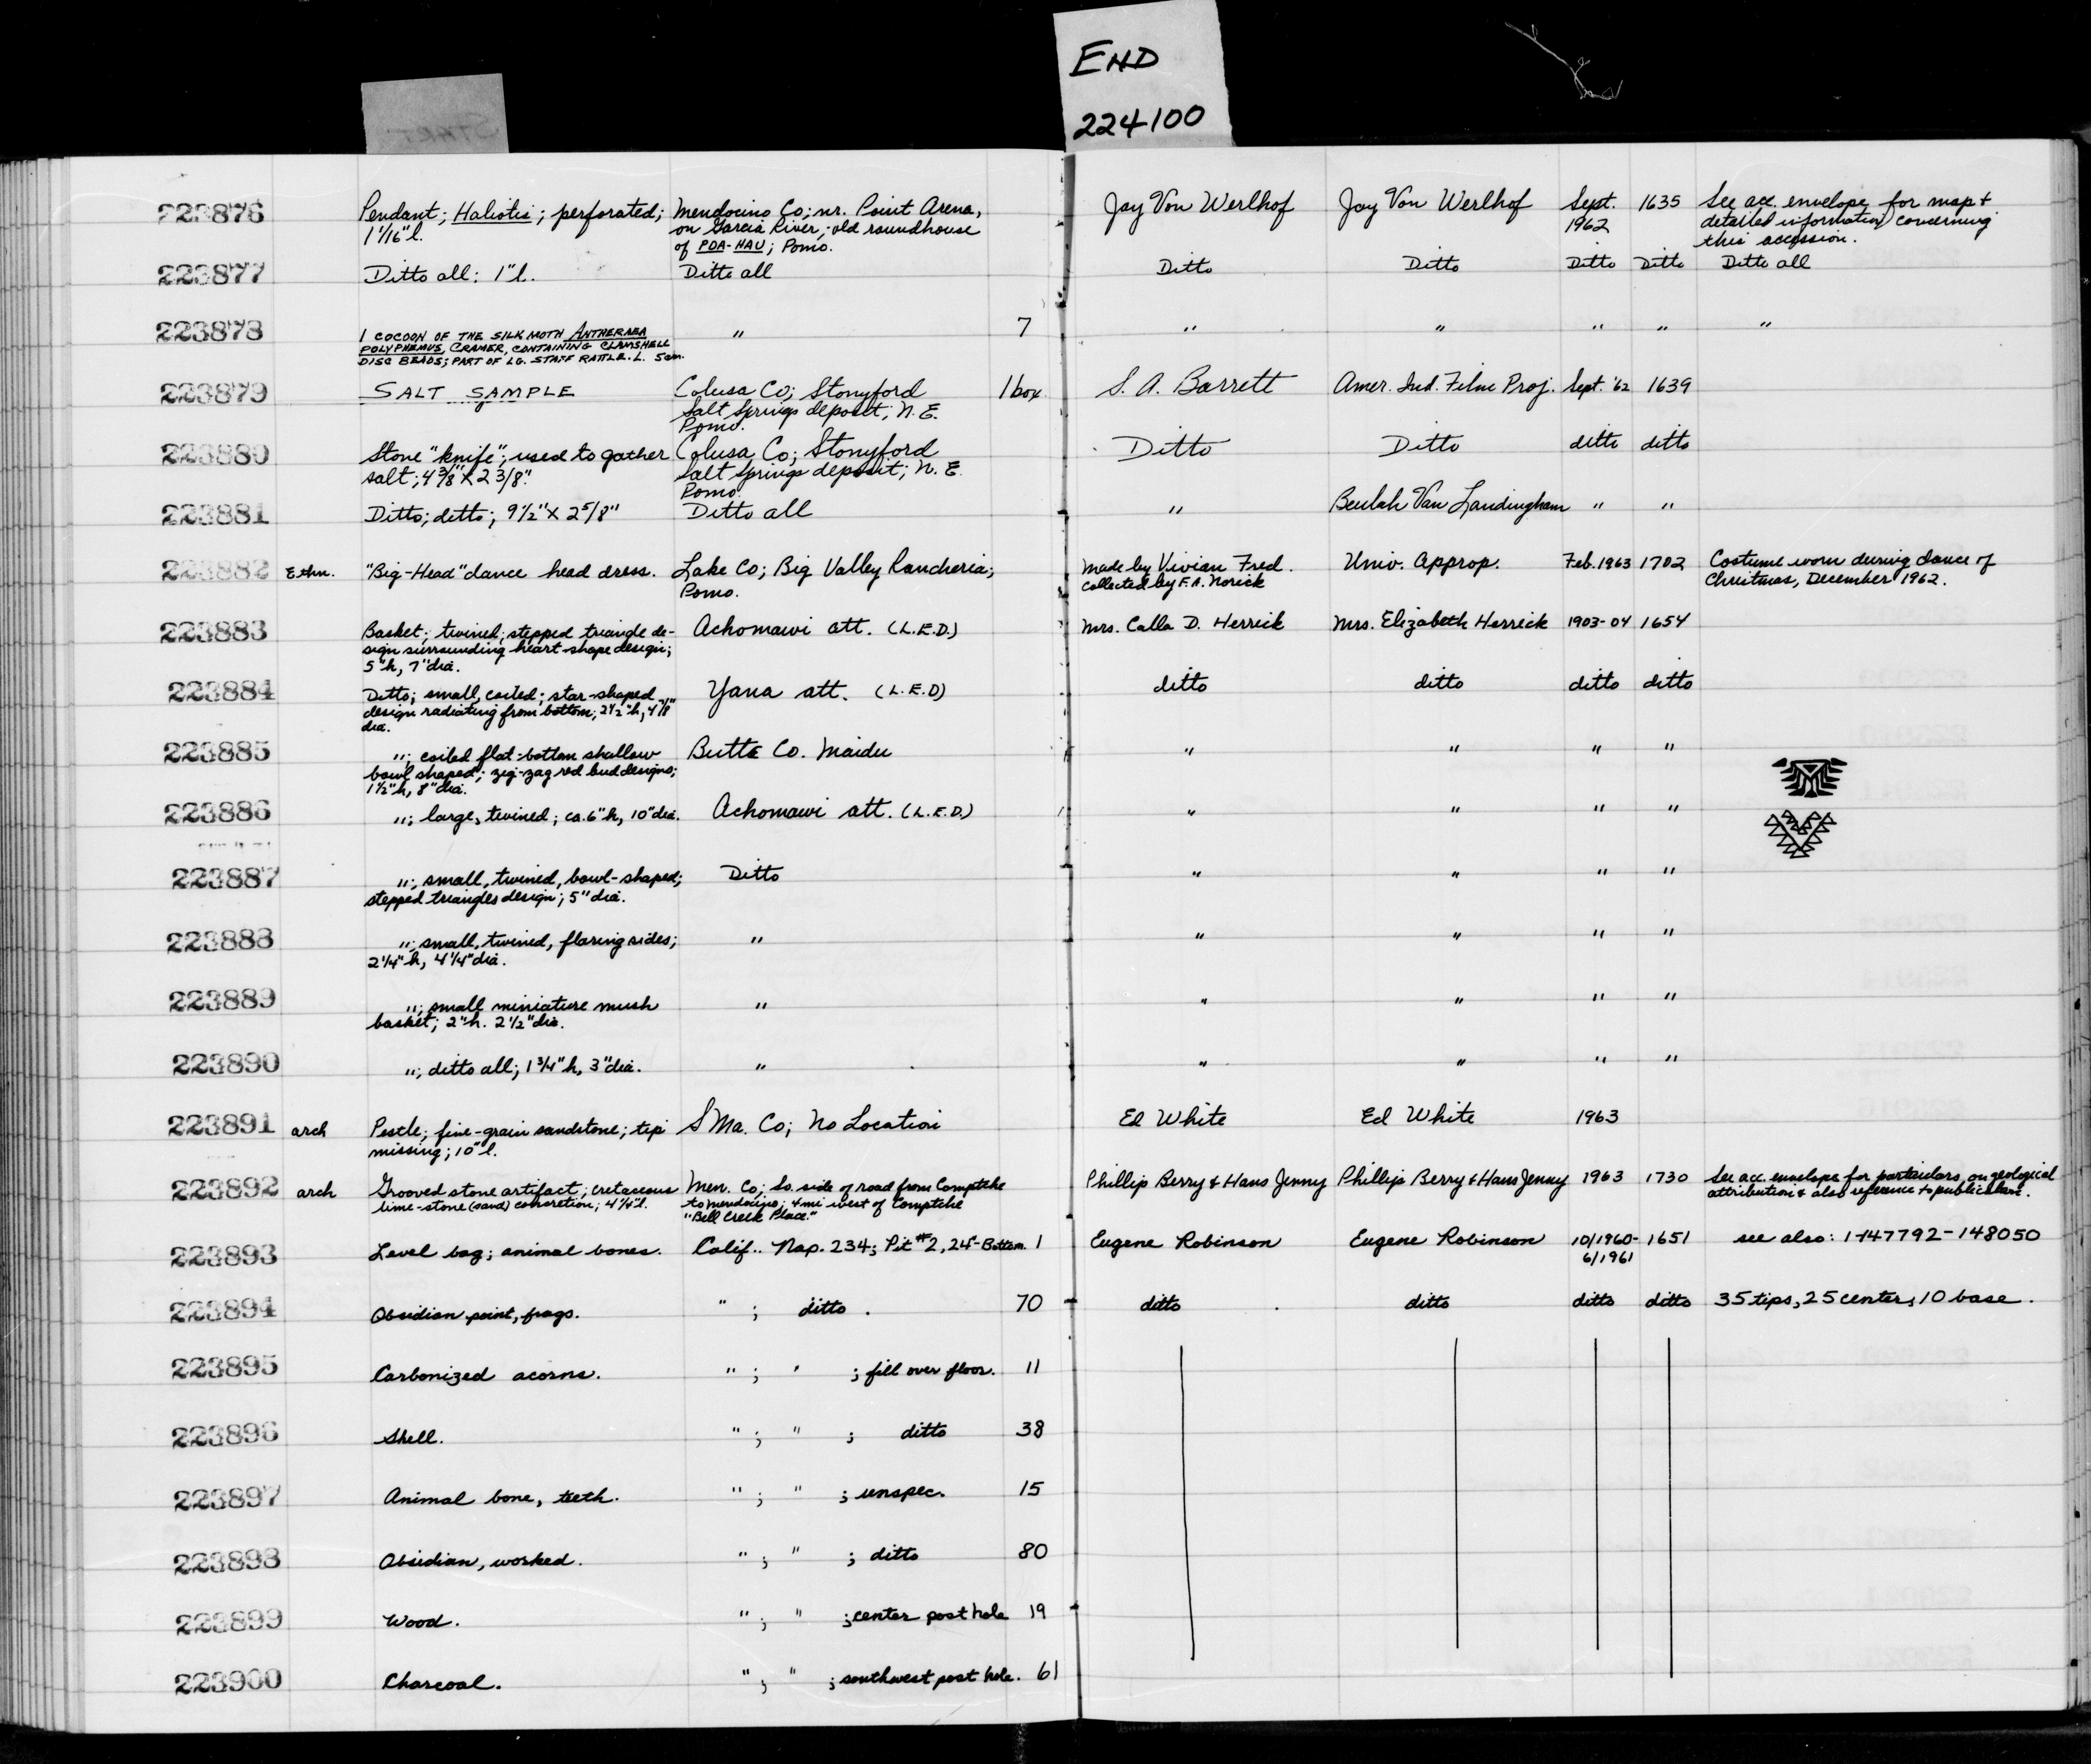 END
224100
START
223876 Pendant; Haliotis; perforated; Mendocino Co; nr. Point Arena, Jay Von Werlhof Jay Von Werlhof Sept. 1635 See acc. envelope for map +
1 1/16" l. on Garcia River; old roundhouse 1962 detailed information concerning
of PDA-HAU; Pomo. this accession.
223877 Ditto all: 1" l. Ditto all Ditto Ditto Ditto Ditto Ditto all
223878 1 COCOON OF THE SILK MOTH ANTHERAEA " 7 " " " " "
POLYPHEMUS, CRAMER, CONTAINING CLAMSHELL
DISC BEADS; PART OF LG. STAFF RATTLE. L. 5cm.
223879 SALT SAMPLE Colusa Co; Stonyford 1 box S. A. Barrett Amer. Ind. Film Proj. Sept. '62 1639
Salt Springs deposit; N. E.
Pomo.
223880 Stone "knife"; used to gather Colusa Co; Stonyford Ditto Ditto ditto ditto
salt; 4 3/8" X 2 3/8" Salt Springs deposit; N. E.
Pomo.
223881 Ditto; ditto; 9 1/2" X 2 5/8" Ditto all " Beulah Van Landingham " "
223882 Ethn. "Big-Head" dance head dress. Lake Co; Big Valley Rancheria; Made by Vivian Fred. Univ. Approp. Feb. 1963 1702 Costume worn during dance of
Pomo. Collected by F. A. Norick Christmas, December 1962.
223883 Basket; twined; stepped triangle de- Achomawi att. (L.E.D.) Mrs. Calla D. Herrick Mrs. Elizabeth Herrick 1903-04 1654
sign surrounding heart shape design;
5" h, 7" dia.
223884 Ditto; small, coiled; star-shaped Yana att. (L.E.D) ditto ditto ditto ditto
design radiating from bottom; 2 1/2" h, 4 7/8"
dia.
223885 "; coiled flat-bottom shallow Butte Co. Maidu " " " "
bowl shaped; zig-zag red bud designs;
1 1/2" h, 8" dia.
223886 "; large, twined; ca. 6" h, 10" dia. Achomawi att. (L.E.D.) " " " "
223887 "; small, twined, bowl-shaped; Ditto " " " "
stepped triangles design; 5" dia.
223888 "; small, twined, flaring sides; " " " " "
2 1/4" h, 4 1/4" dia.
223889 "; small miniature mush " " " " "
basket; 2" h. 2 1/2" dia.
223890 "; ditto all; 1 3/4" h, 3" dia. " " " " "
223891 arch Pestle; fine-grain sandstone; tip SMa. Co; No Location Ed White Ed White 1963
missing; 10" l.
223892 arch Grooved stone artifact; cretaceous Men. Co; So. side of road from Comptche Phillip Berry & Hans Jenny Phillip Berry & Hans Jenny 1963 1730 See acc. envelope for particulars on geological
lime-stone (sand) concretion; 4 1/4" l. to Mendocino; 4 mi west of Comptche attribution & also reference to publications.
"Bell Creek Place."
223893 Level bag; animal bones. Calif.. Nap. 234; Pit #2, 24"-Bottom. 1 Eugene Robinson Eugene Robinson 10/1960- 1651 see also: 1-147792-148050
6/1961
223894 Obsidian point, frags. " ; ditto . 70 ditto ditto ditto ditto 35 tips, 25 center, 10 base.
223895 Carbonized acorns. " ; " ; fill over floor. 11
223896 Shell. " ; " ; ditto 38
223897 Animal bone, teeth. " ; " ; unspec. 15
223898 Obsidian, worked. " ; " ; ditto 80
223899 Wood. " ; " ; center post hole 19
223900 Charcoal. " ; " ; southwest post hole. 61